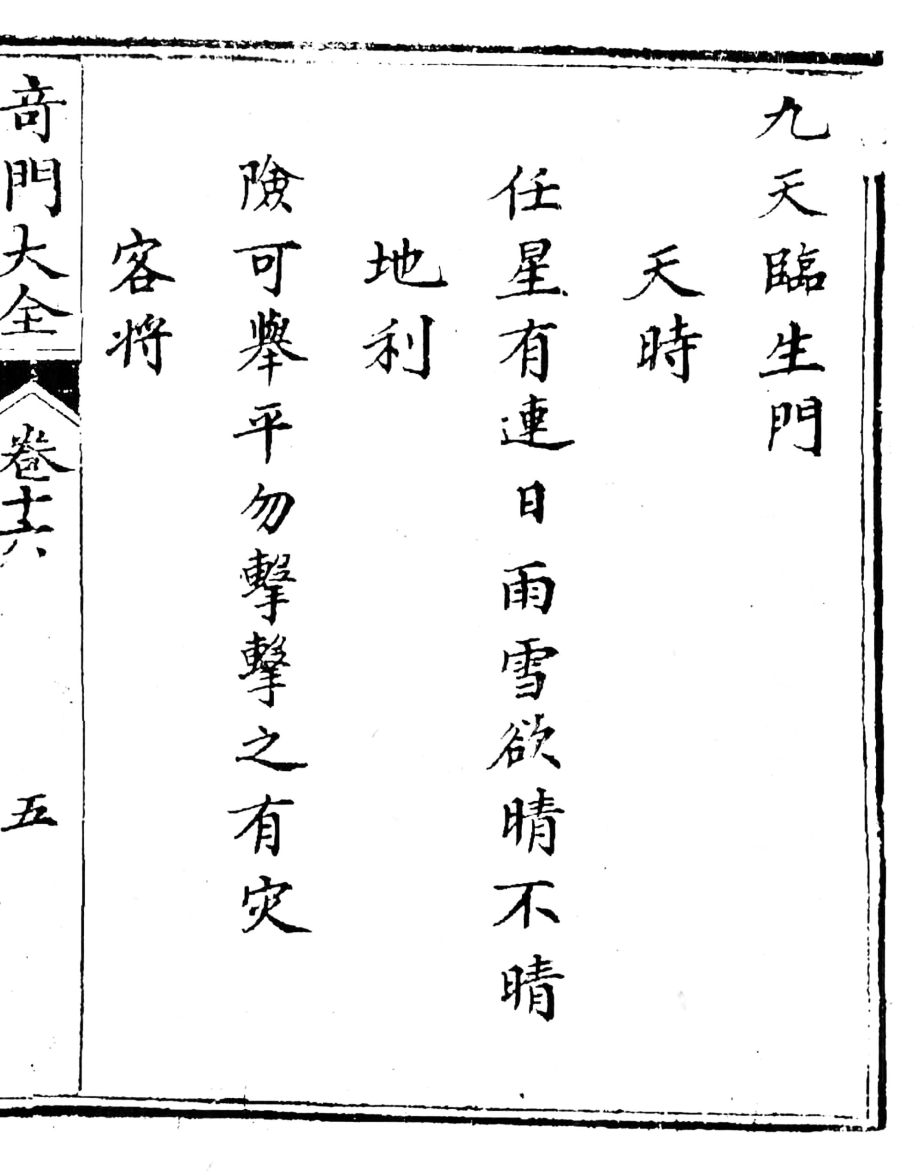 九天臨生門
天時
任星有連日雨雪欲晴不晴
地利
險可舉平勿擊擊之有灾
客将
奇門大全
卷十六
五